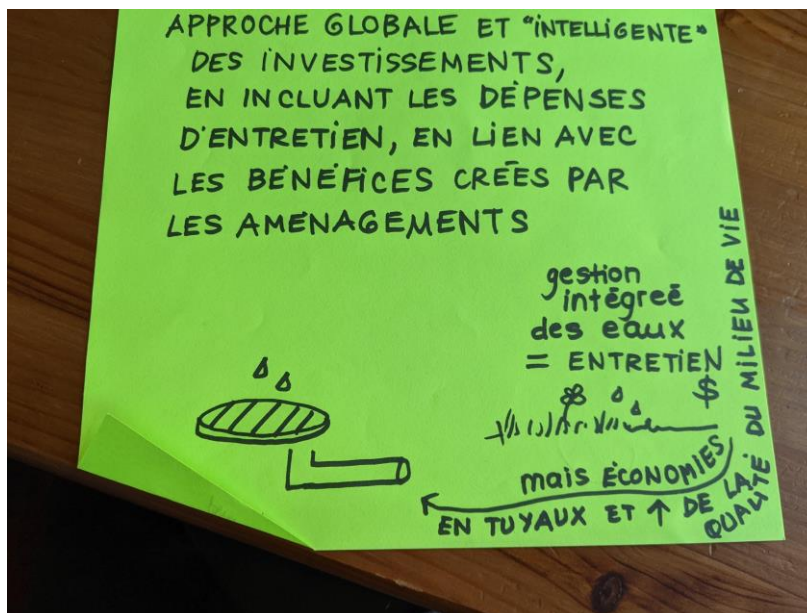 APPROCHE GLOBALE ET "INTELLIGENTE"
DES INVESTISSEMENTS,
EN INCLUANT LES DÉPENSES
D'ENTRETIEN, EN LIEN AVEC
LES BÉNÉFICES CRÉÉS PAR
LES AMÉNAGEMENTS
gestion
intégreé
des eaux
= ENTRETIEN
$
mais ÉCONOMIES
EN TUYAUX ET ↑ DE LA
QUALITÉ DU MILIEU DE VIE